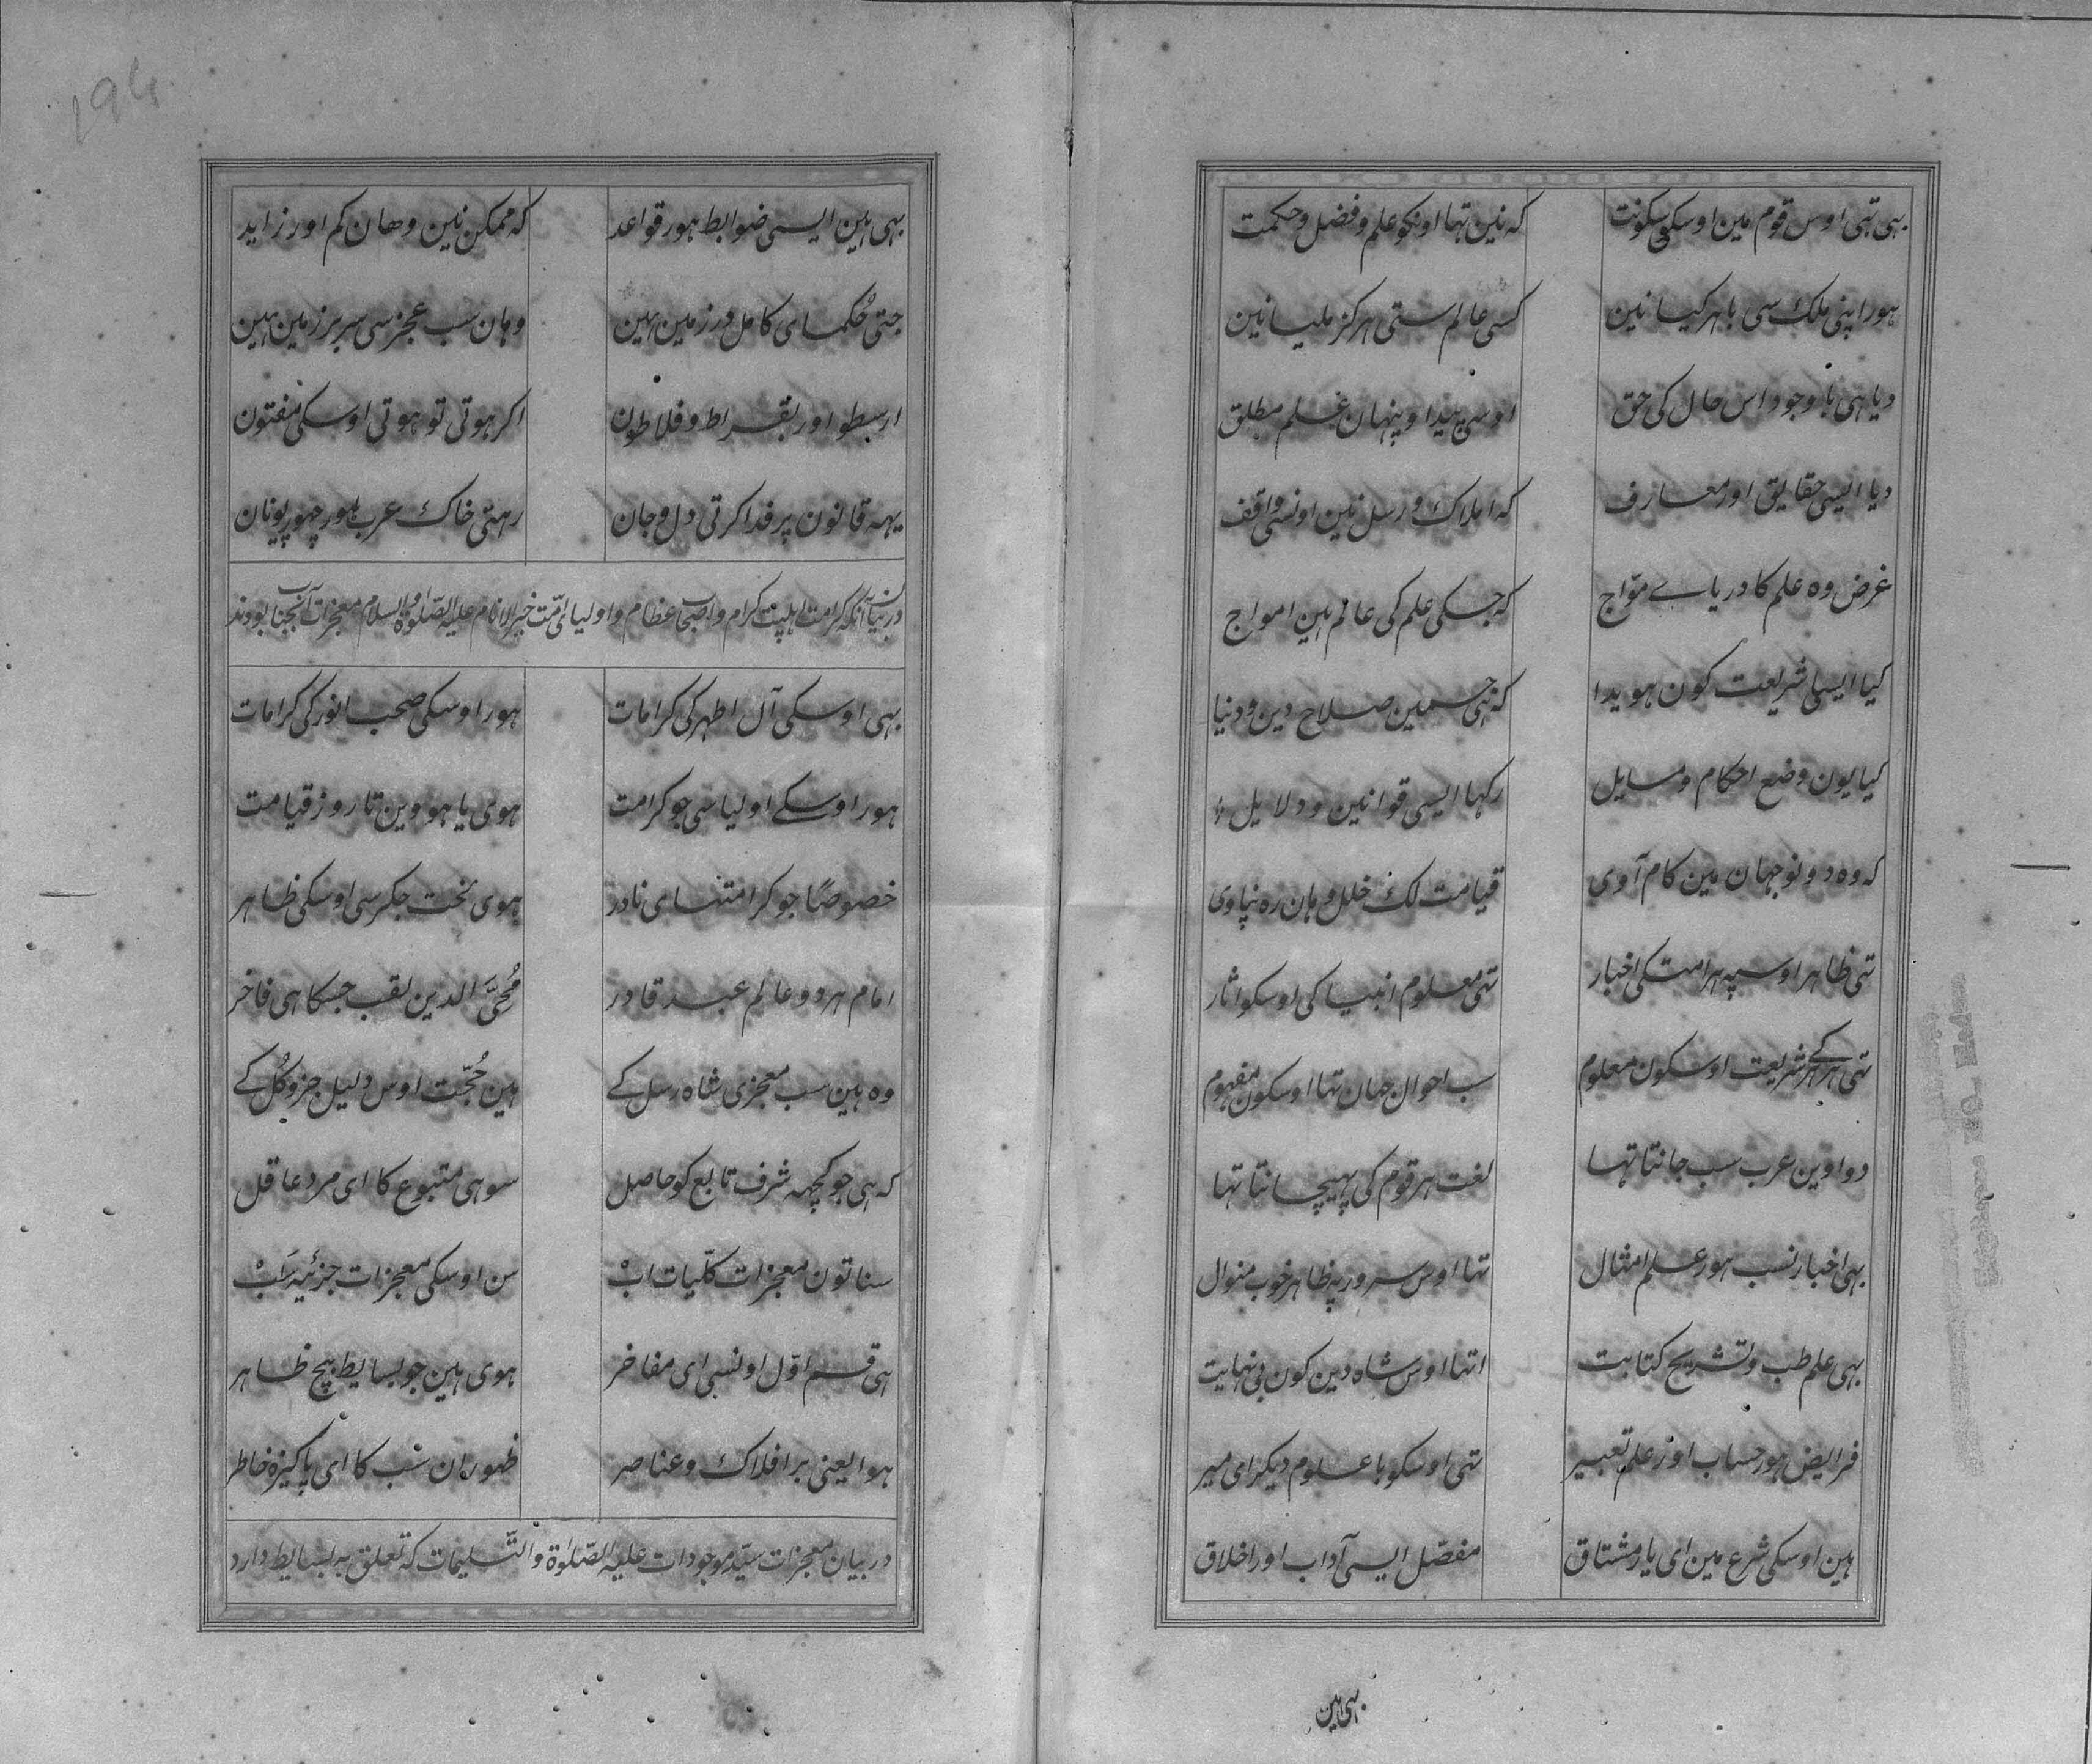 بہی تہی اوس قوم مین اوسکی سکونت کہ نین تہا اونکو علم و فضل و حکمت
ہور اپنی ملک سی باہر کیا نین کسی عالم ستی ہرکز ملیا نین
دیا ہی باوجود اس حال کی حق اوسی پیدا و پنہان علم مطلق
دیا ایسی حقایق اور معارف کہ املاک و رسل نین اونسی واقف
غرض وہ علم کا دریاے موّاج کہ جسکی علم کی عالم ہین امواج
کیا ایسی شریعت کون ہویدا کہ ہی جسمین صلاح دین و دنیا
کیا یون وضع احکام و مسایل رکہا ایسی قوانین و دلایل
کہ وہ دونو جہان مین کام آوی قیامت لک خلل وہان رہ نپاوی
تہی ظاہر اوسپہ ہر امت کی اخبار تہی معلوم انبیا کی اوسکو اثار
تہی ہر کے ہر شریعت اوسکون معلوم سب احوال جہان تہا اوسکون مفہوم
دواوین عرب سب جانتا تہا لغت ہر قوم کی پہیچانتا تہا
بہی اخبار نسب ہور علم امثال تہا اوس سرور پہ ظاہر خوب منوال
بہی علم طب و تشریح کتابت اتہا اوس شاہ دین کون بی نہایت
فرایض ہور حساب اور علم تعبیر تہی اوسکو با علوم دیکر ای میر
ہین اوسکی شرع مین ای یار مشتاق مفصّل ایسی آداب اور اخلاق
بہی ہین
194
بہی ہین ایسی ضوابط ہور قواعد کہ ممکن نین وہان کم اور زاید
جتی حُکمای کامل در زمین ہین وہان سب عجز سی سر بر زمین ہین
ارسطو اور بقراط و فلاطون اکر ہوتی تو ہوتی اوسکی مفتون
یہہ قانون پر فدا کرتی دل و جان رہتی خاک عرب ہور چہور یونان
در بیان آنکہ کرامت اہلبیت کرام و اصحاب عظام و اولیای امّت خیر الانام علیہ الصّلوة و السلام معجزات آنجناب بودند
بہی اوسکی آل اطہر کی کرامات ہور اوسکی صحب انور کی کرامات
ہور اوسکے اولیا سی جو کرامت ہوی یا ہووین تا روز قیامت
خصوصًا جو کرامتہای نادر ہوی لخت جکر سی اوسکی ظاہر
امام ہر دو عالم عبد قادر مُحیَّ الدین لقب جسکا ہی فاخر
وہ ہین سب معجزی شاہ رسل کے ہین حُجّت اوس دلیل جز و کُل کے
کہ ہی جو کچہہ شرف تابع کو حاصل سو ہی متبوع کا ای مرد عاقل
سنا تون معجزات کلّیات اب سن اوسکی معجزات جزئیہ سَب
ہی قسم اوّل اونسی ای مفاخر ہوی ہین جو بسایط بیچ ظاہر
ہوا یعنی بر افلاک و عناصر ظہور ان سب کا ای پاکیزہ خاطر
در بیان معجزات سیّد موجودات علیہ الصّلوة والتّسلیمات کہ تعلق بہ بسایط دارد